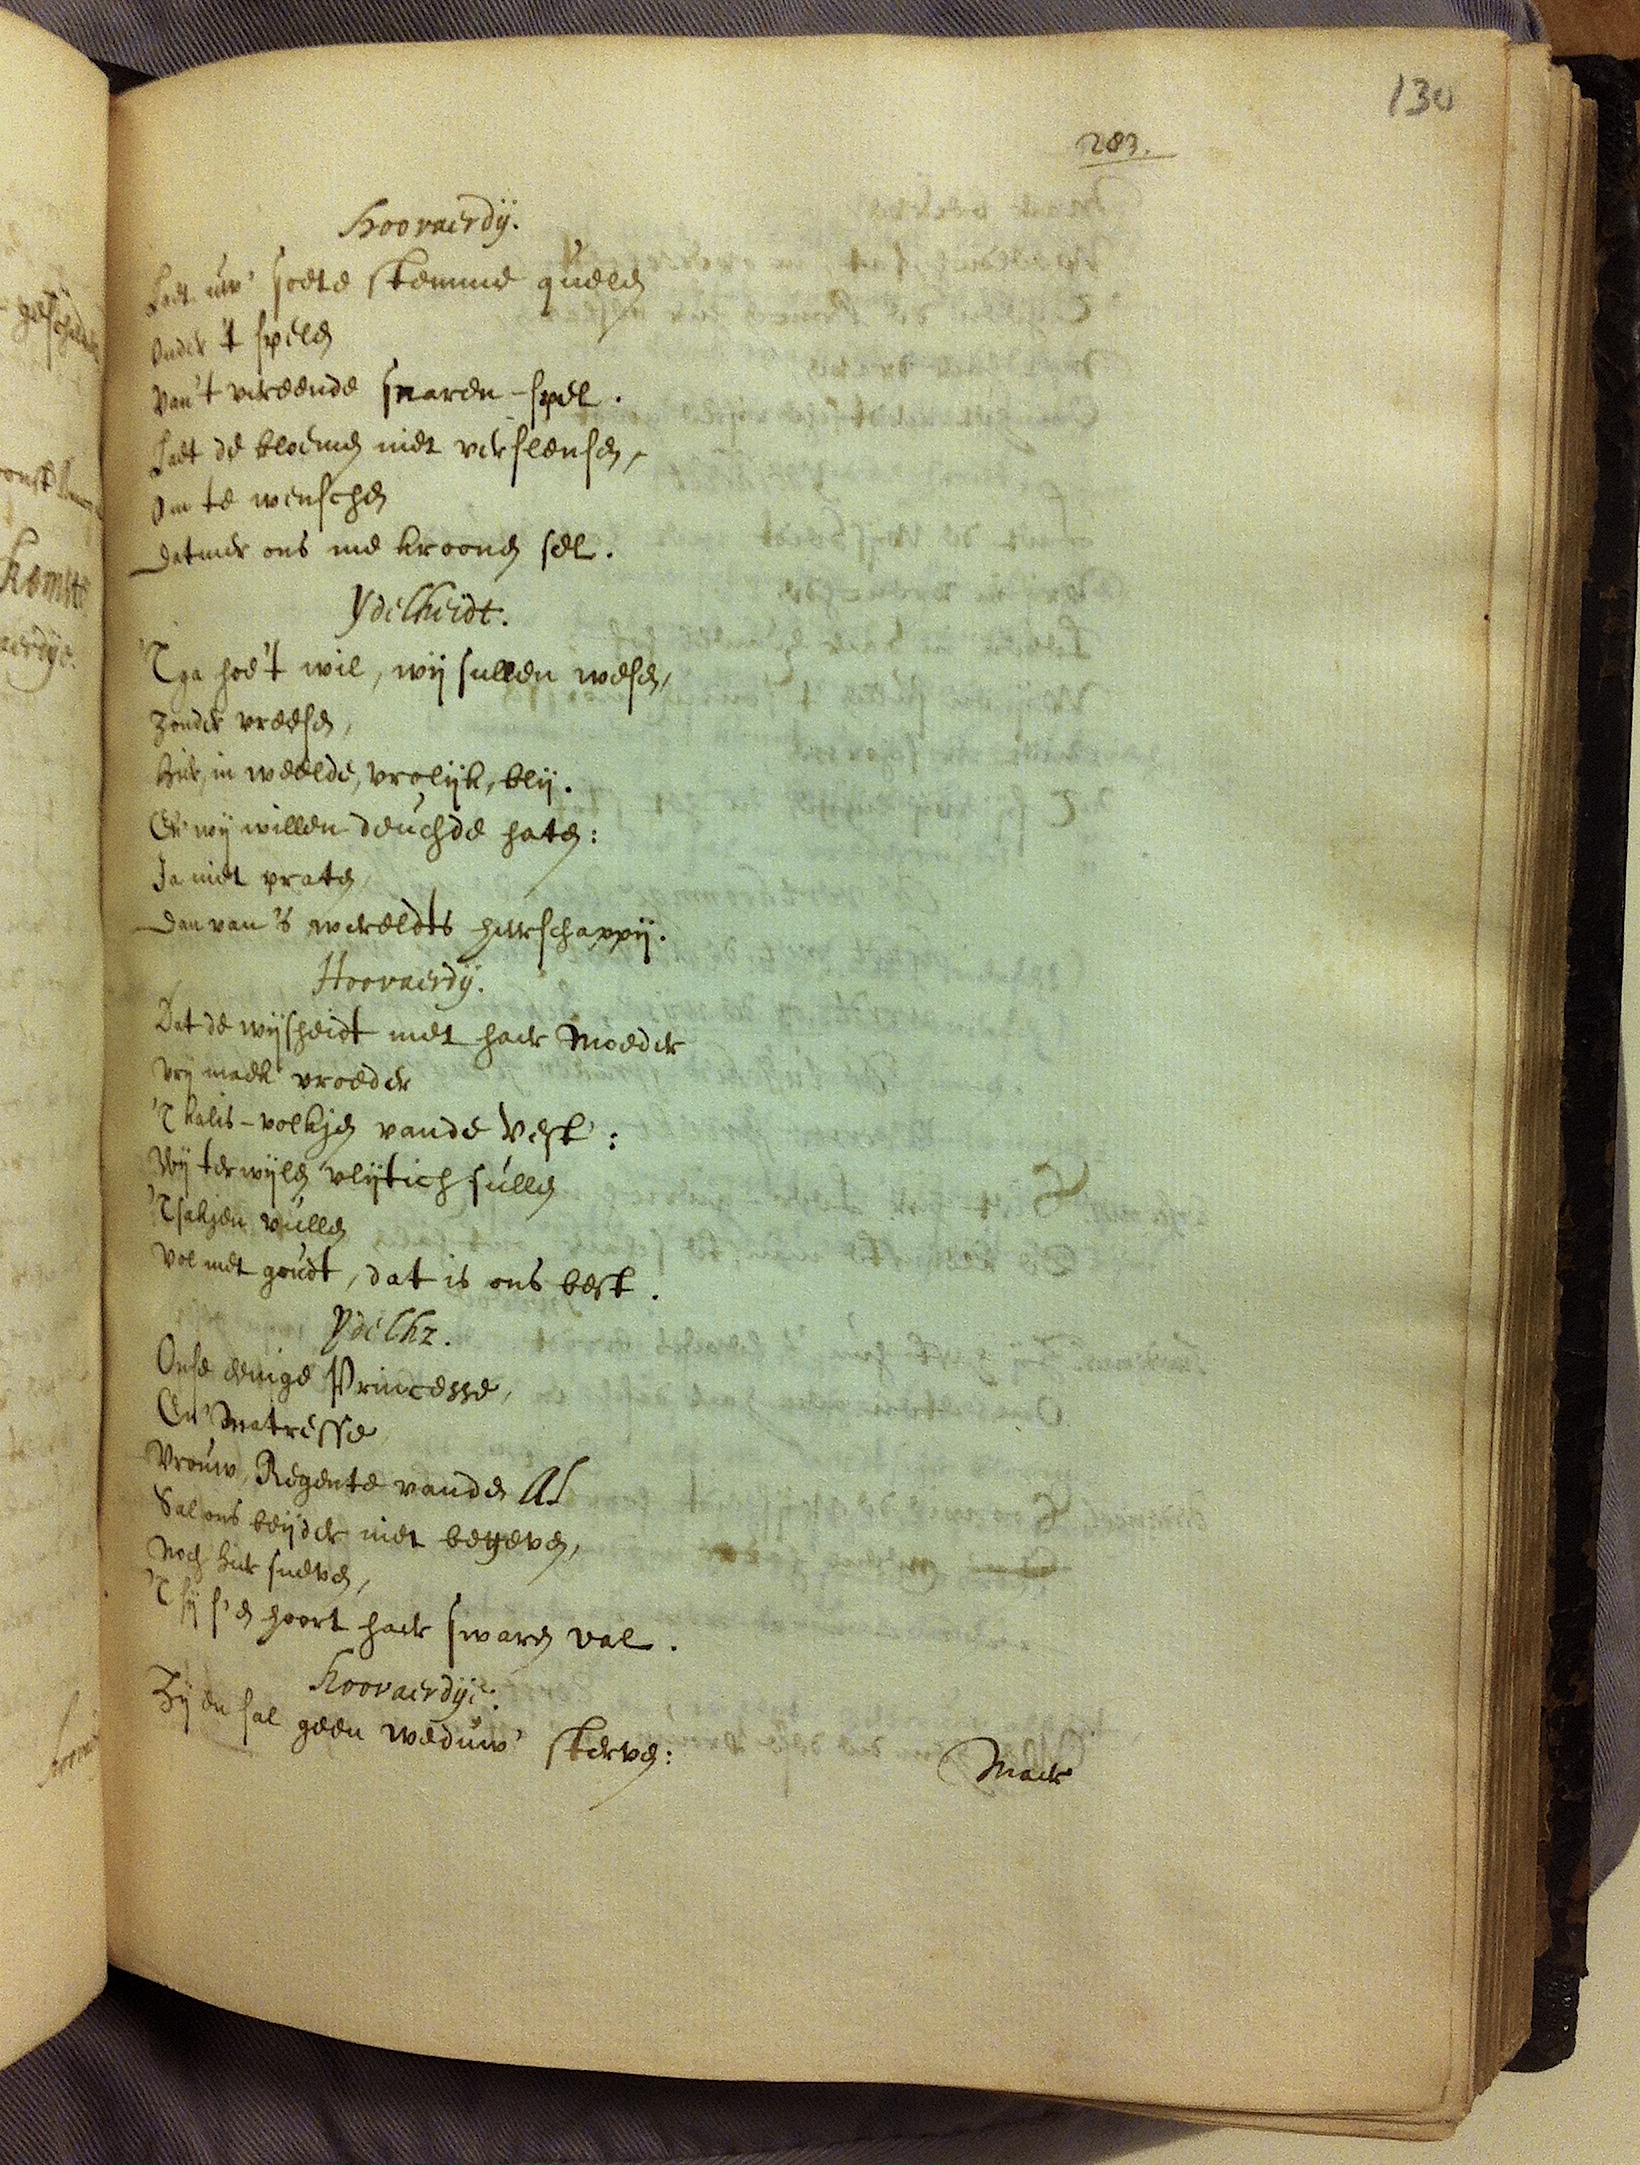 130
283.
Hoovaerdij.
Laet uw' soete stemme queelen
Onder 't speelen
Van 't vereende snaren-spel.
Laet de bloemen niet verslensen,
Om te wenschen
Datmer ons me kroonen sel.
Ydelheidt.
'T ga hoe 't wil, wij sullen wesen,
Zonder vreesen,
Hier, in weelde, vrolijk, blij.
En wij willen deuchde haten:
Ja niet praten
Dan van 's werelts heerschappij.
Hoovaerdij.
Dat de wijsheidt met haer Moeder
Vrij maek vroeder
'T kalis-volkjen vande Vest:
Wij terwijlen vlijtich sullen
'T sakjen vullen
Vol met goudt, dat is ons best.
Ydelht.
Onse eenige Princesse,
En Matresse
Vrouw, Regente vanden Al
Sal ons beijder niet begeven,
Noch hier sneven,
'T sij s'en hoort haer swaren val.
Hoovaerdije.
Zij en sal geen weduw' sterven:
Maer